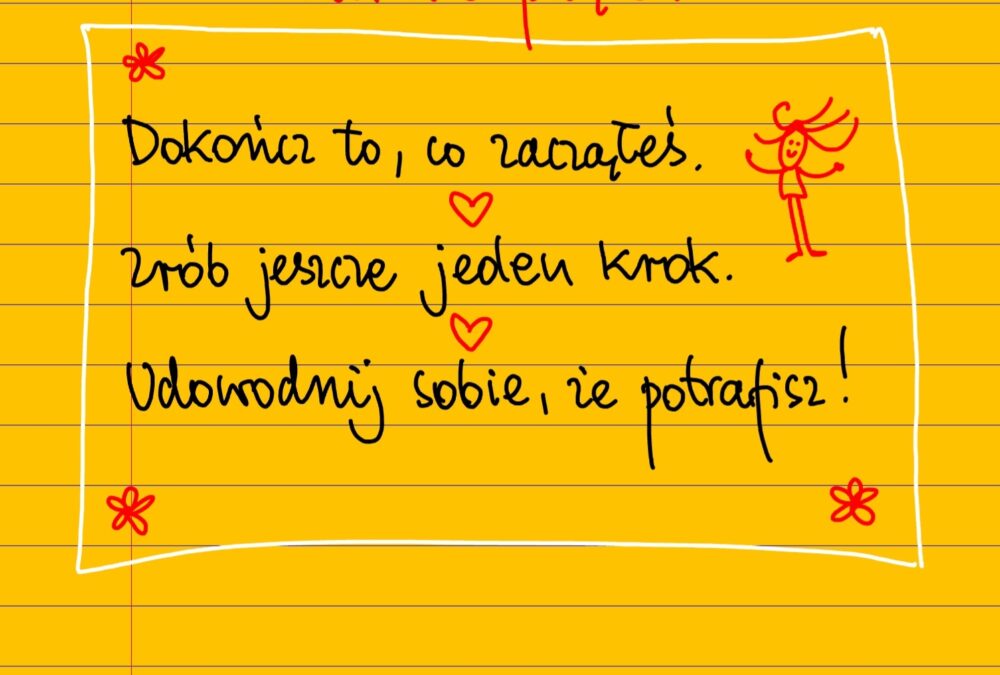 Dokończ to, co zacząłeś.
zrób jeszcze jeden krok.
Udowodnij sobie, że potrafisz!